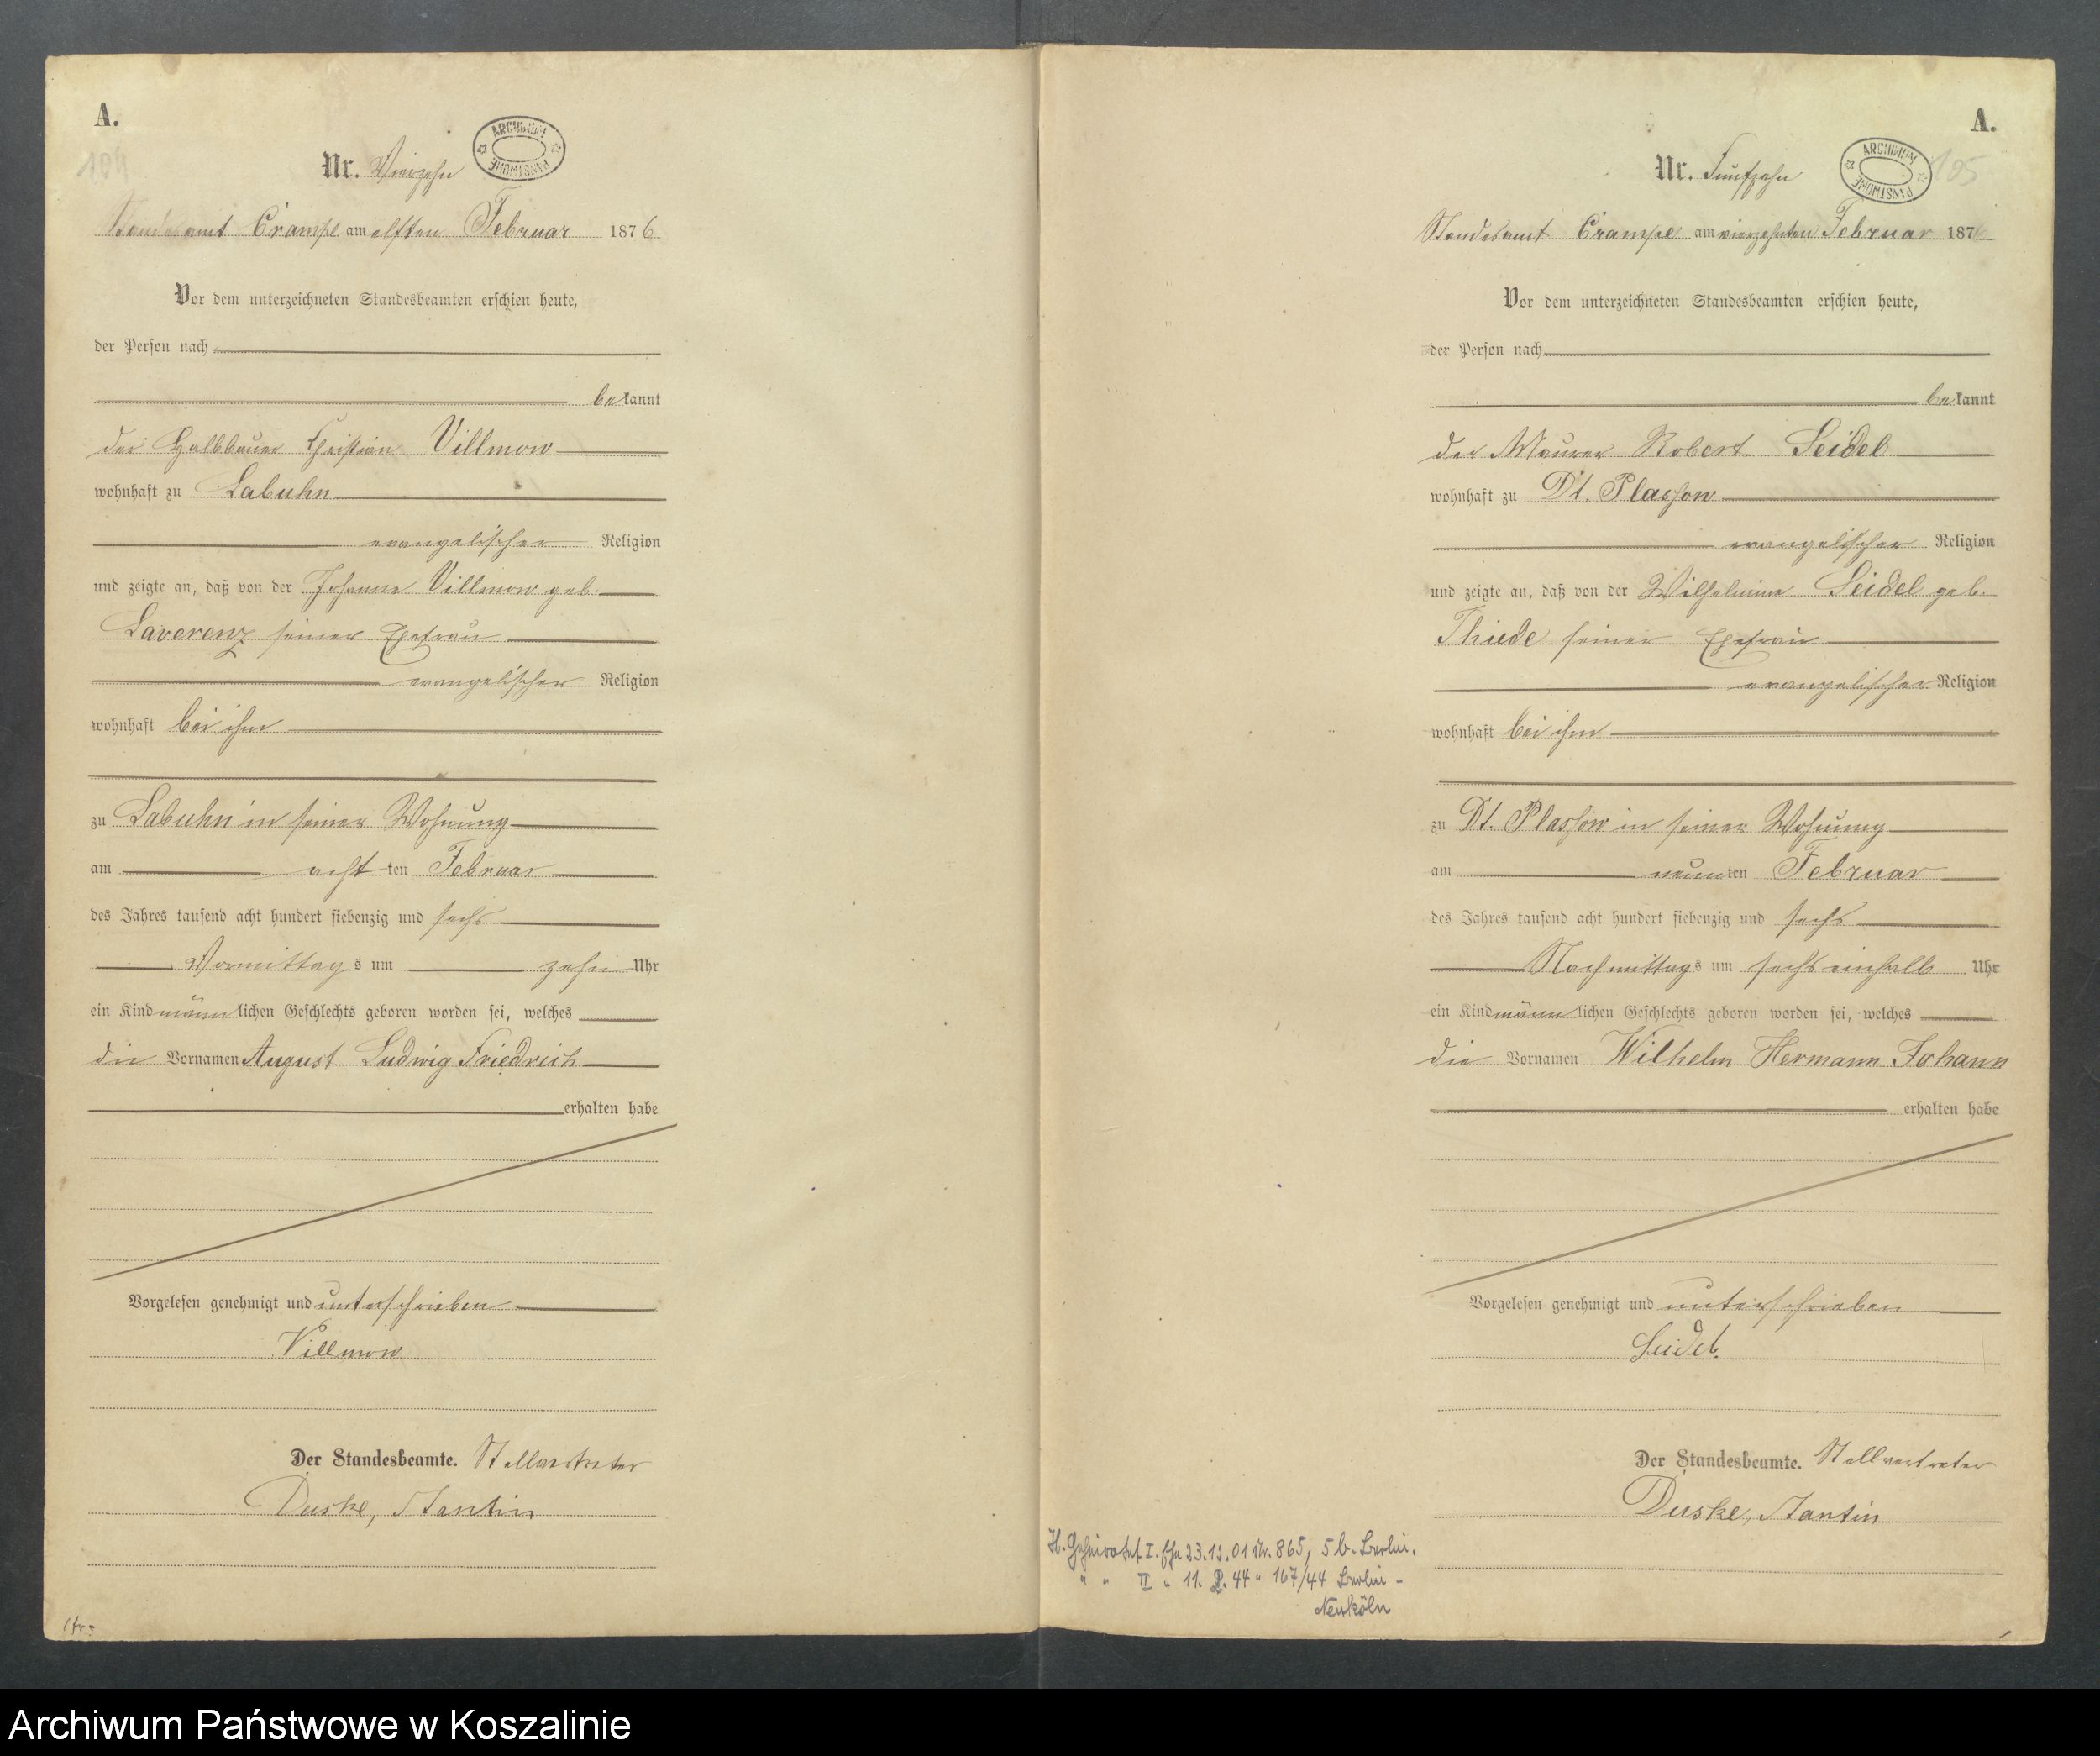 A.
104
Nr. Vierzehn
ARCHIWUM PAŃSTWOWE
Standesamt Crampe am elften Februar 1876
Vor dem unterzeichneten Standesbeamten erschien heute,
der Person nach
bekannt
der Halbbauer Christian Villmow
wohnhaft zu Labuhn
evangelischer Religion
und zeigte an, daß von der Johanne Villmow geb.
Laverenz seiner Ehefrau
evangelischer Religion
wohnhaft bei ihm
zu Labuhn in seiner Wohnung
am achtten Februar
des Jahres tausend acht hundert siebenzig und sechs
Vormittags um zehn Uhr
ein Kind männlichen Geschlechts geboren worden sei, welches
die Vornamen August Ludwig Friedrich
erhalten habe
Vorgelesen genehmigt und unterschrieben
Villmow
Der Standesbeamte. Stellvertreter
Duske, Stantin
A.
105
Nr. Fünfzehn
ARCHIWUM PAŃSTWOWE
Standesamt Crampe am vierzehnten Februar 1876
Vor dem unterzeichneten Standesbeamten erschien heute,
der Person nach
bekannt
der Maurer Robert Seidel
wohnhaft zu Dt. Plassow
evangelischer Religion
und zeigte an, daß von der Wilhelmine Seidel geb.
Thiede seiner Ehefrau
evangelischer Religion
wohnhaft bei ihm
zu Dt. Plassow in seiner Wohnung
am neunten Februar
des Jahres tausend acht hundert siebenzig und sechs
Nachmittags um sechseinhalb Uhr
ein Kind männlichen Geschlechts geboren worden sei, welches
die Vornamen Wilhelm Hermann Johann
erhalten habe
Vorgelesen genehmigt und unterschrieben
Seidel.
Der Standesbeamte. Stellvertreter
Duske, Stantin
Geheiratet I. Ehe 23.12.01 Nr. 865, 5 b. Berlin.
" " II " 11. 2. 44 " 167/44 Berlin-
Neukölln
Archiwum Państwowe w Koszalinie